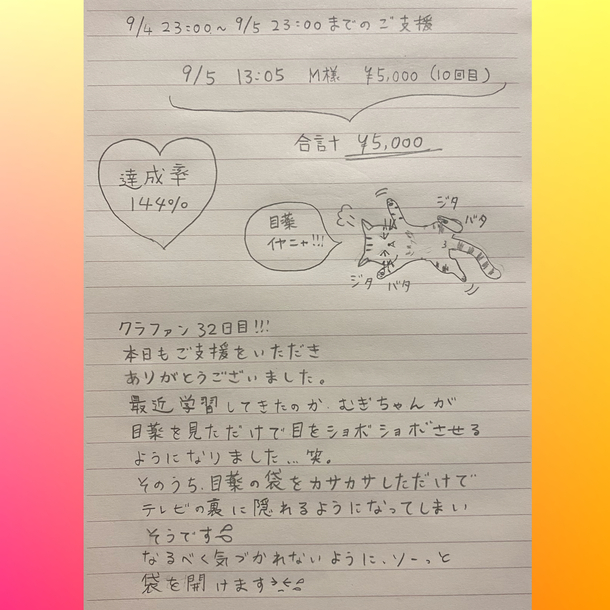 9/4 23:00~9/5 23:00までのご支援
9/5 13:05 M様 ¥5,000 (10回目)
合計 ¥5,000
達成率
144%
目薬
イヤニャ!!!
ジタ
バタ
ジタ バタ
クラファン32日目!!!
本日もご支援をいただき
ありがとうございました。
最近学習してきたのか、むぎちゃんが
目薬を見ただけで目をショボショボさせる
ようになりました...笑。
そのうち、目薬の袋をカサカサしただけで
テレビの裏に隠れるようになってしまい
そうです
なるべく気づかれないように、ソーっと
袋を開けます